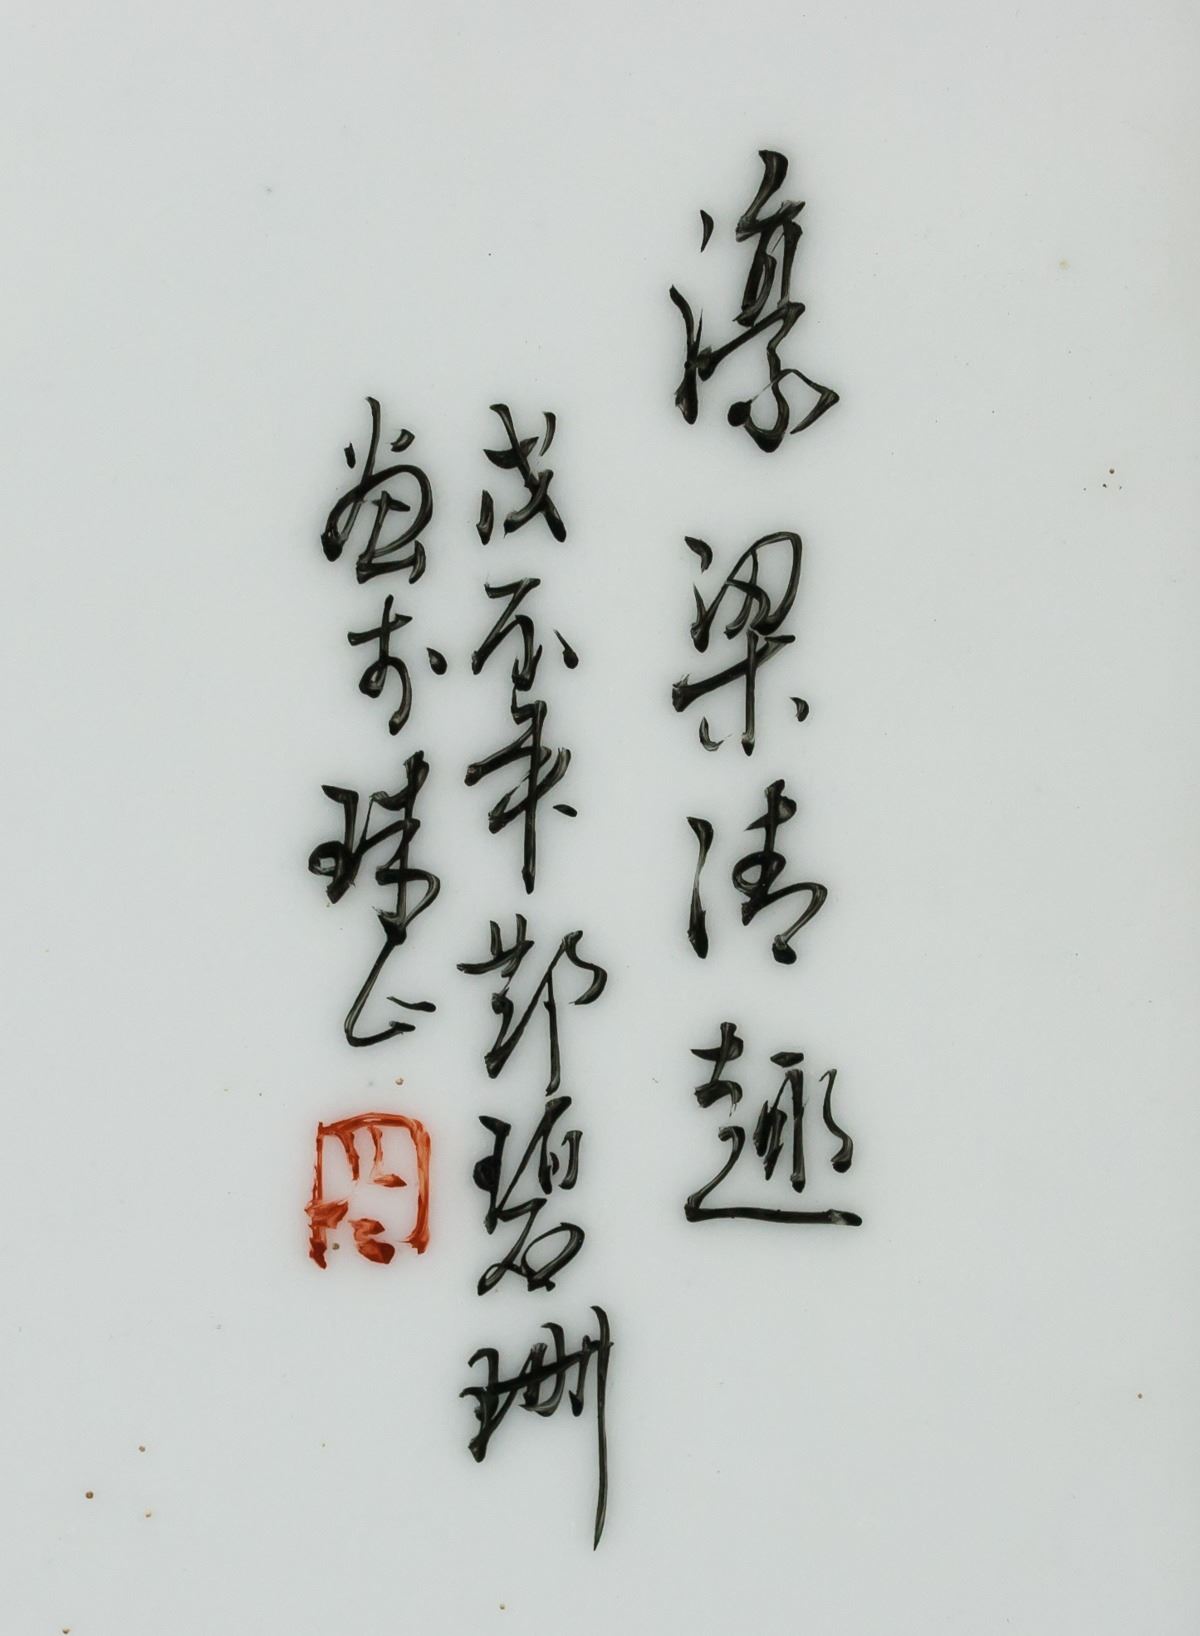 濠梁清趣
戊子年鄧碧珊
畫於珠山